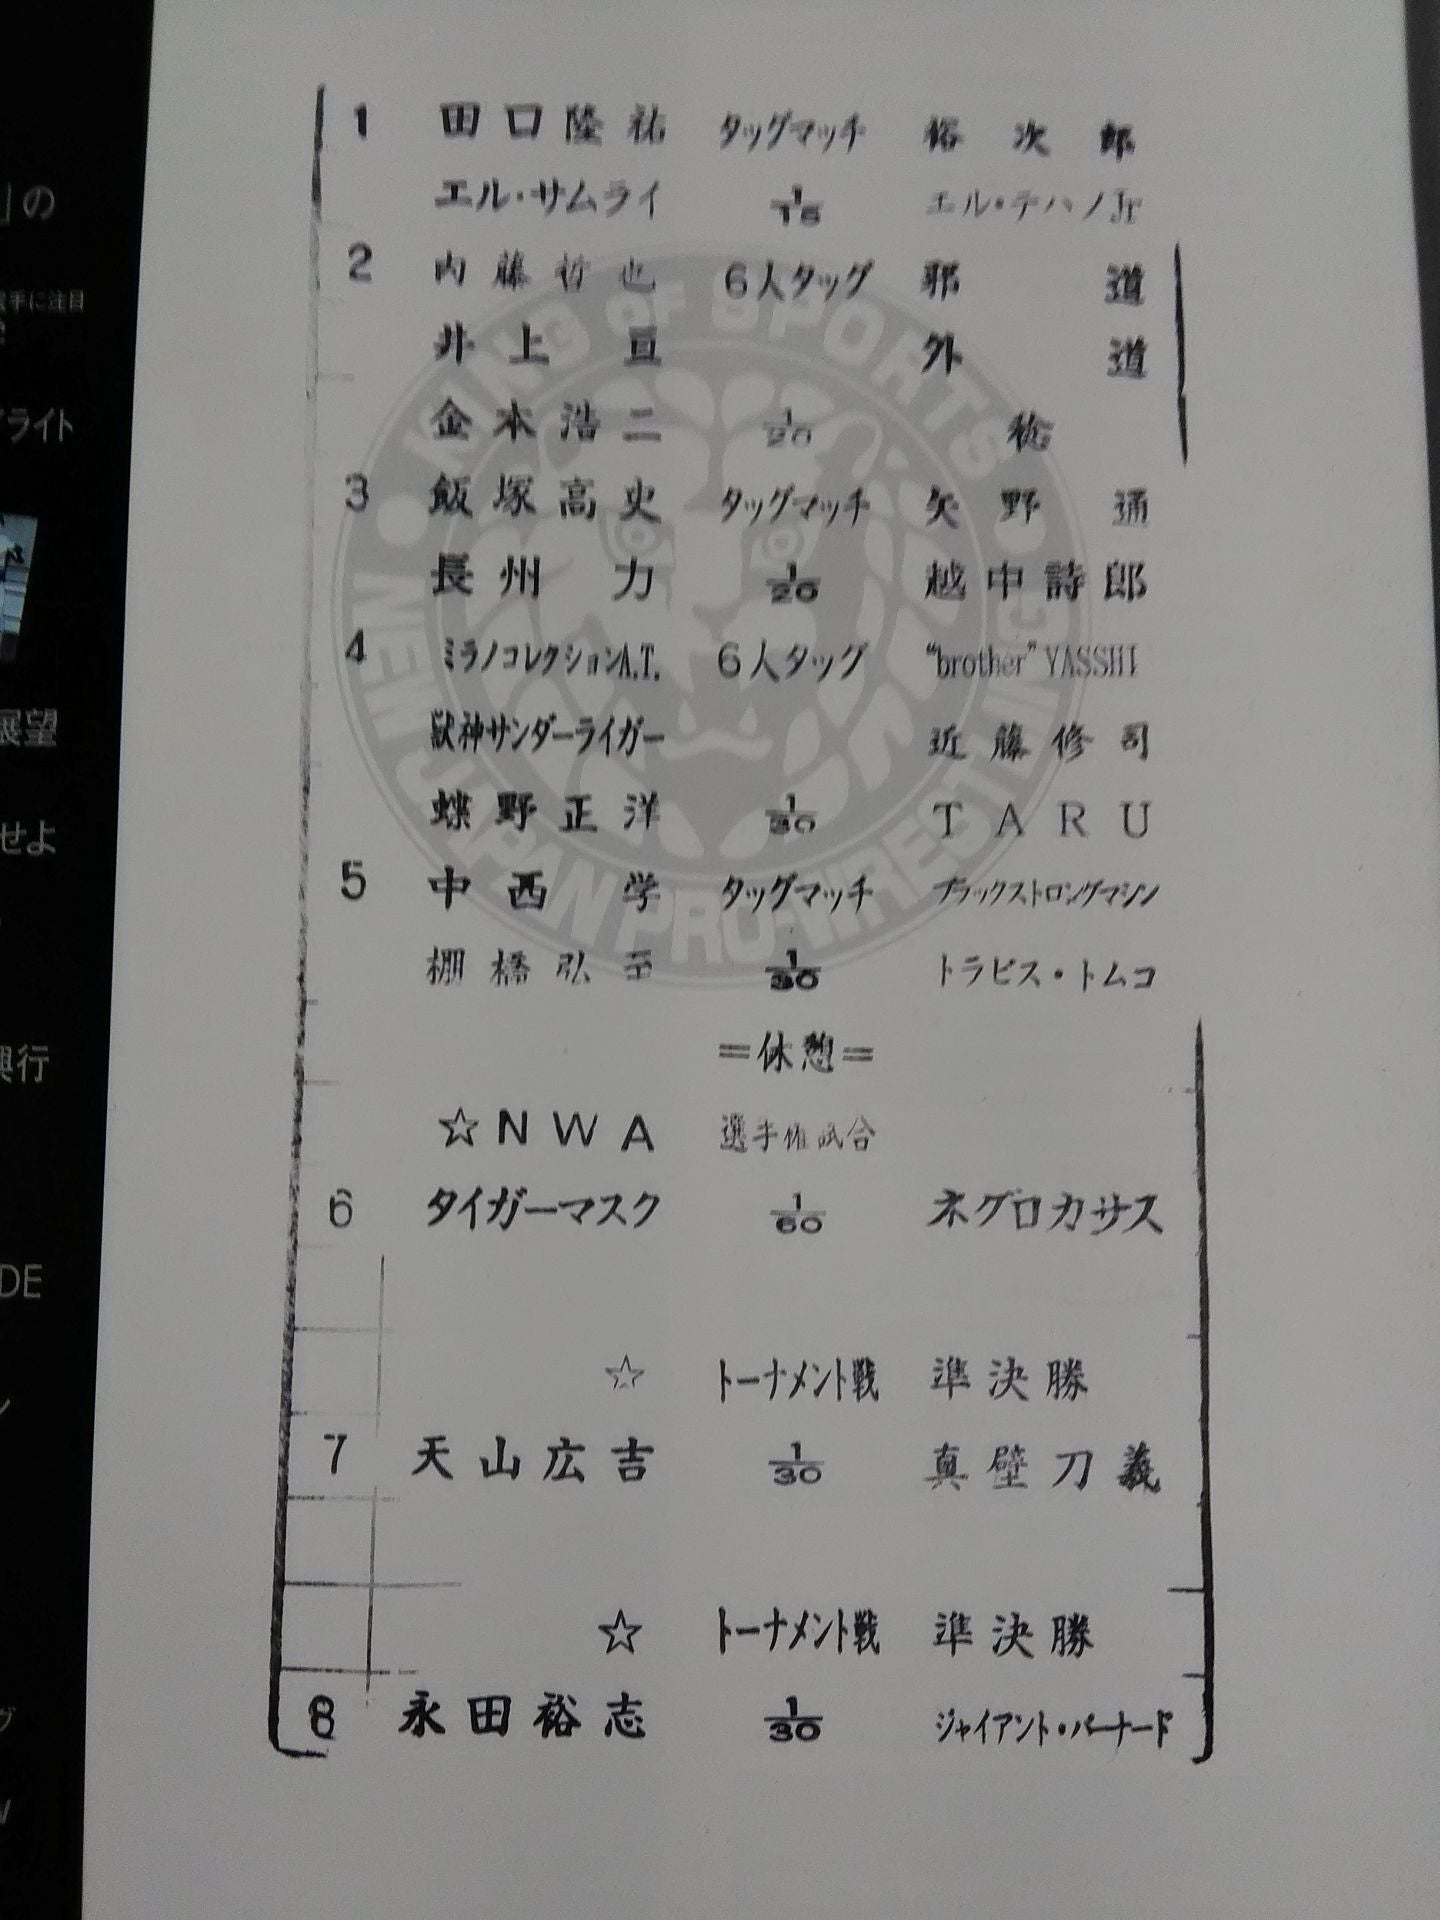 」の
選手に注目
ライト
展望
せよ
興行
DE
1 田口隆祐 タッグマッチ 裕次郎
エル・サムライ 1/15 エル・テハノJr
2 内藤哲也 6人タッグ 邪道
井上亘 外道
金本浩二 1/20 稔
3 飯塚高史 タッグマッチ 矢野通
長州力 1/20 越中詩郎
4 ミラノコレクションA.T. 6人タッグ "brother"YASSHI
獣神サンダーライガー 近藤修司
蝶野正洋 1/30 TARU
5 中西学 タッグマッチ ブラックストロングマシン
棚橋弘至 1/30 トラビス・トムコ
=休憩=
☆NWA 選手権試合
6 タイガーマスク 1/60 ネグロカサス
☆ トーナメント戦 準決勝
7 天山広吉 1/30 真壁刀義
☆ トーナメント戦 準決勝
8 永田裕志 1/30 ジャイアント・バーナード
KING OF SPORTS
NEW JAPAN PRO-WRESTLING